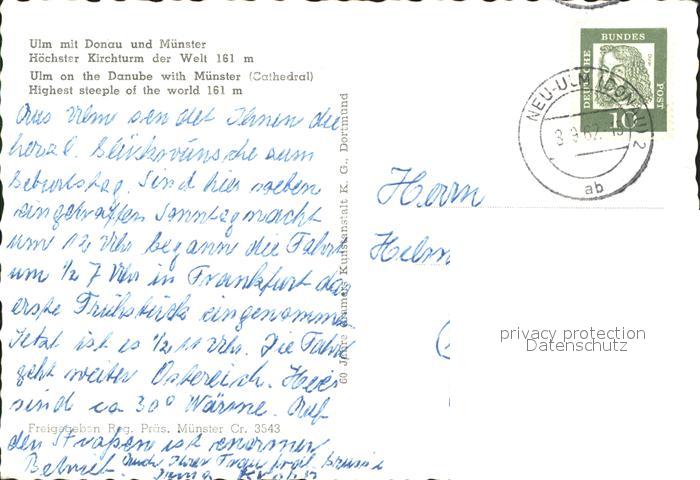 Ulm mit Donau und Münster
Höchster Kirchturm der Welt 161 m
Ulm on the Danube with Münster (Cathedral)
Highest steeple of the world 161 m
Aus Ulm sendet Ihnen die
herzl. Glückwünsche zum
Geburtstag. Sind hier soeben
eingetroffen Sonntagnacht
um 12 Uhr begann die Fahrt
um ½ 7 Uhr in Frankfurt das
erste Frühstück eingenommen
Jetzt ist es ½ 11 Uhr. Die Fahrt
geht weiter Östereich. Hier
sind ca 30° Wärme. Auf
den Straßen ist enormer
Betrieb. Auch Ihrer Frau
Freigegeben Reg. Präs. Münster Cr. 3543
Kunstanstalt K. G., Dortmund
DEUTSCHE BUNDES POST
10
NEU-ULM (DONAU) 2
ab
Herrn
privacy protection
Datenschutz